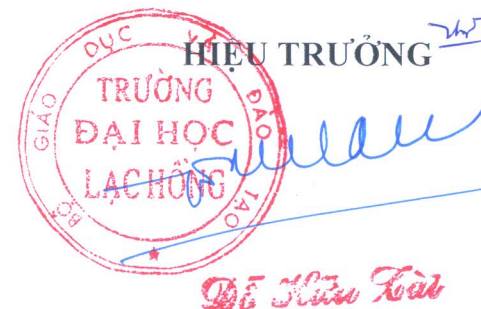 HIỆU TRƯỞNG
BỘ GIÁO DỤC VÀ ĐÀO TẠO
TRƯỜNG
ĐẠI HỌC
LẠC HỒNG
Đỗ Hữu Tài